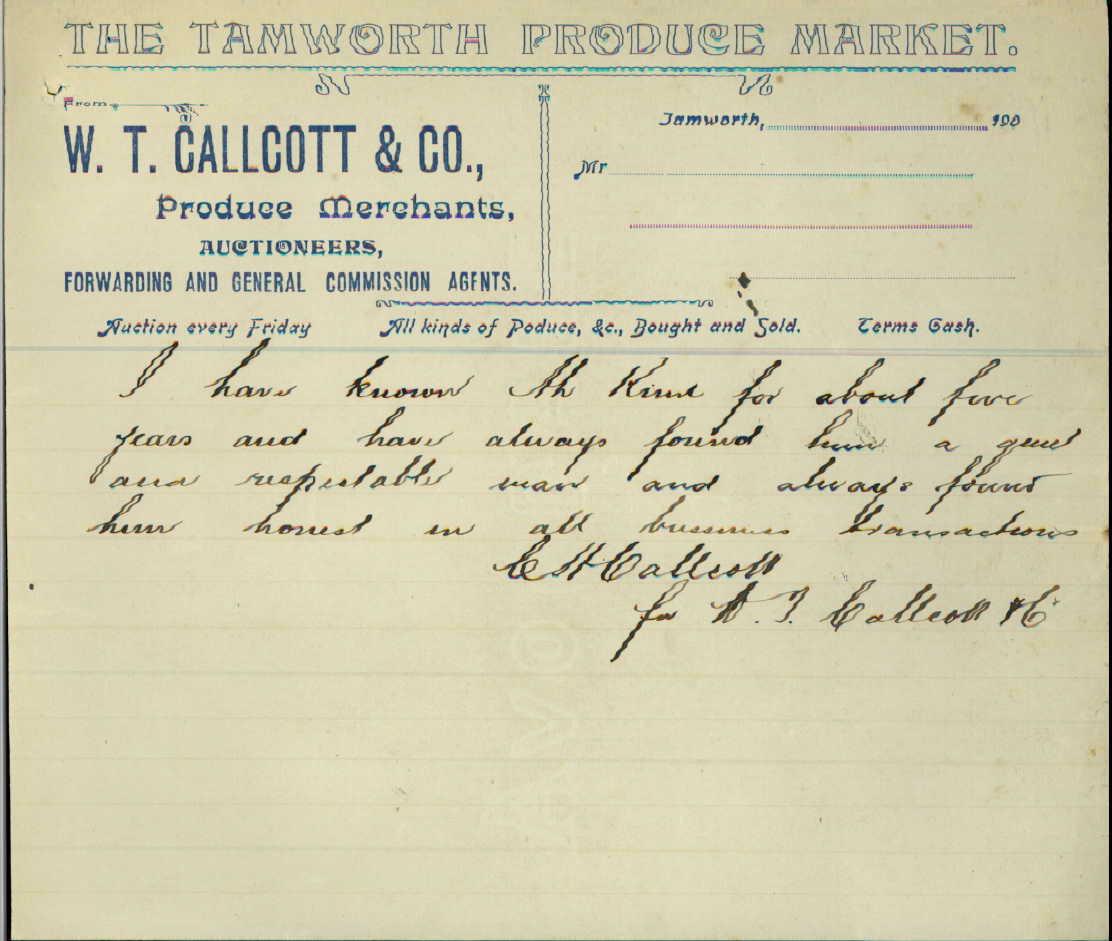 THE TAMWORTH PRODUCE MARKET.
From
W. T. CALLCOTT & CO.,
Produce Merchants,
AUCTIONEERS,
FORWARDING AND GENERAL COMMISSION AGENTS.
Tamworth, 190
Mr
Auction every Friday All kinds of Poduce, &c., Bought and Sold. Terms Cash.
I have known for about five
years and have always found him a
and respectable man and always found
him honest in all bussiness transactions
C H Callcott
for W. T. Callcott & C